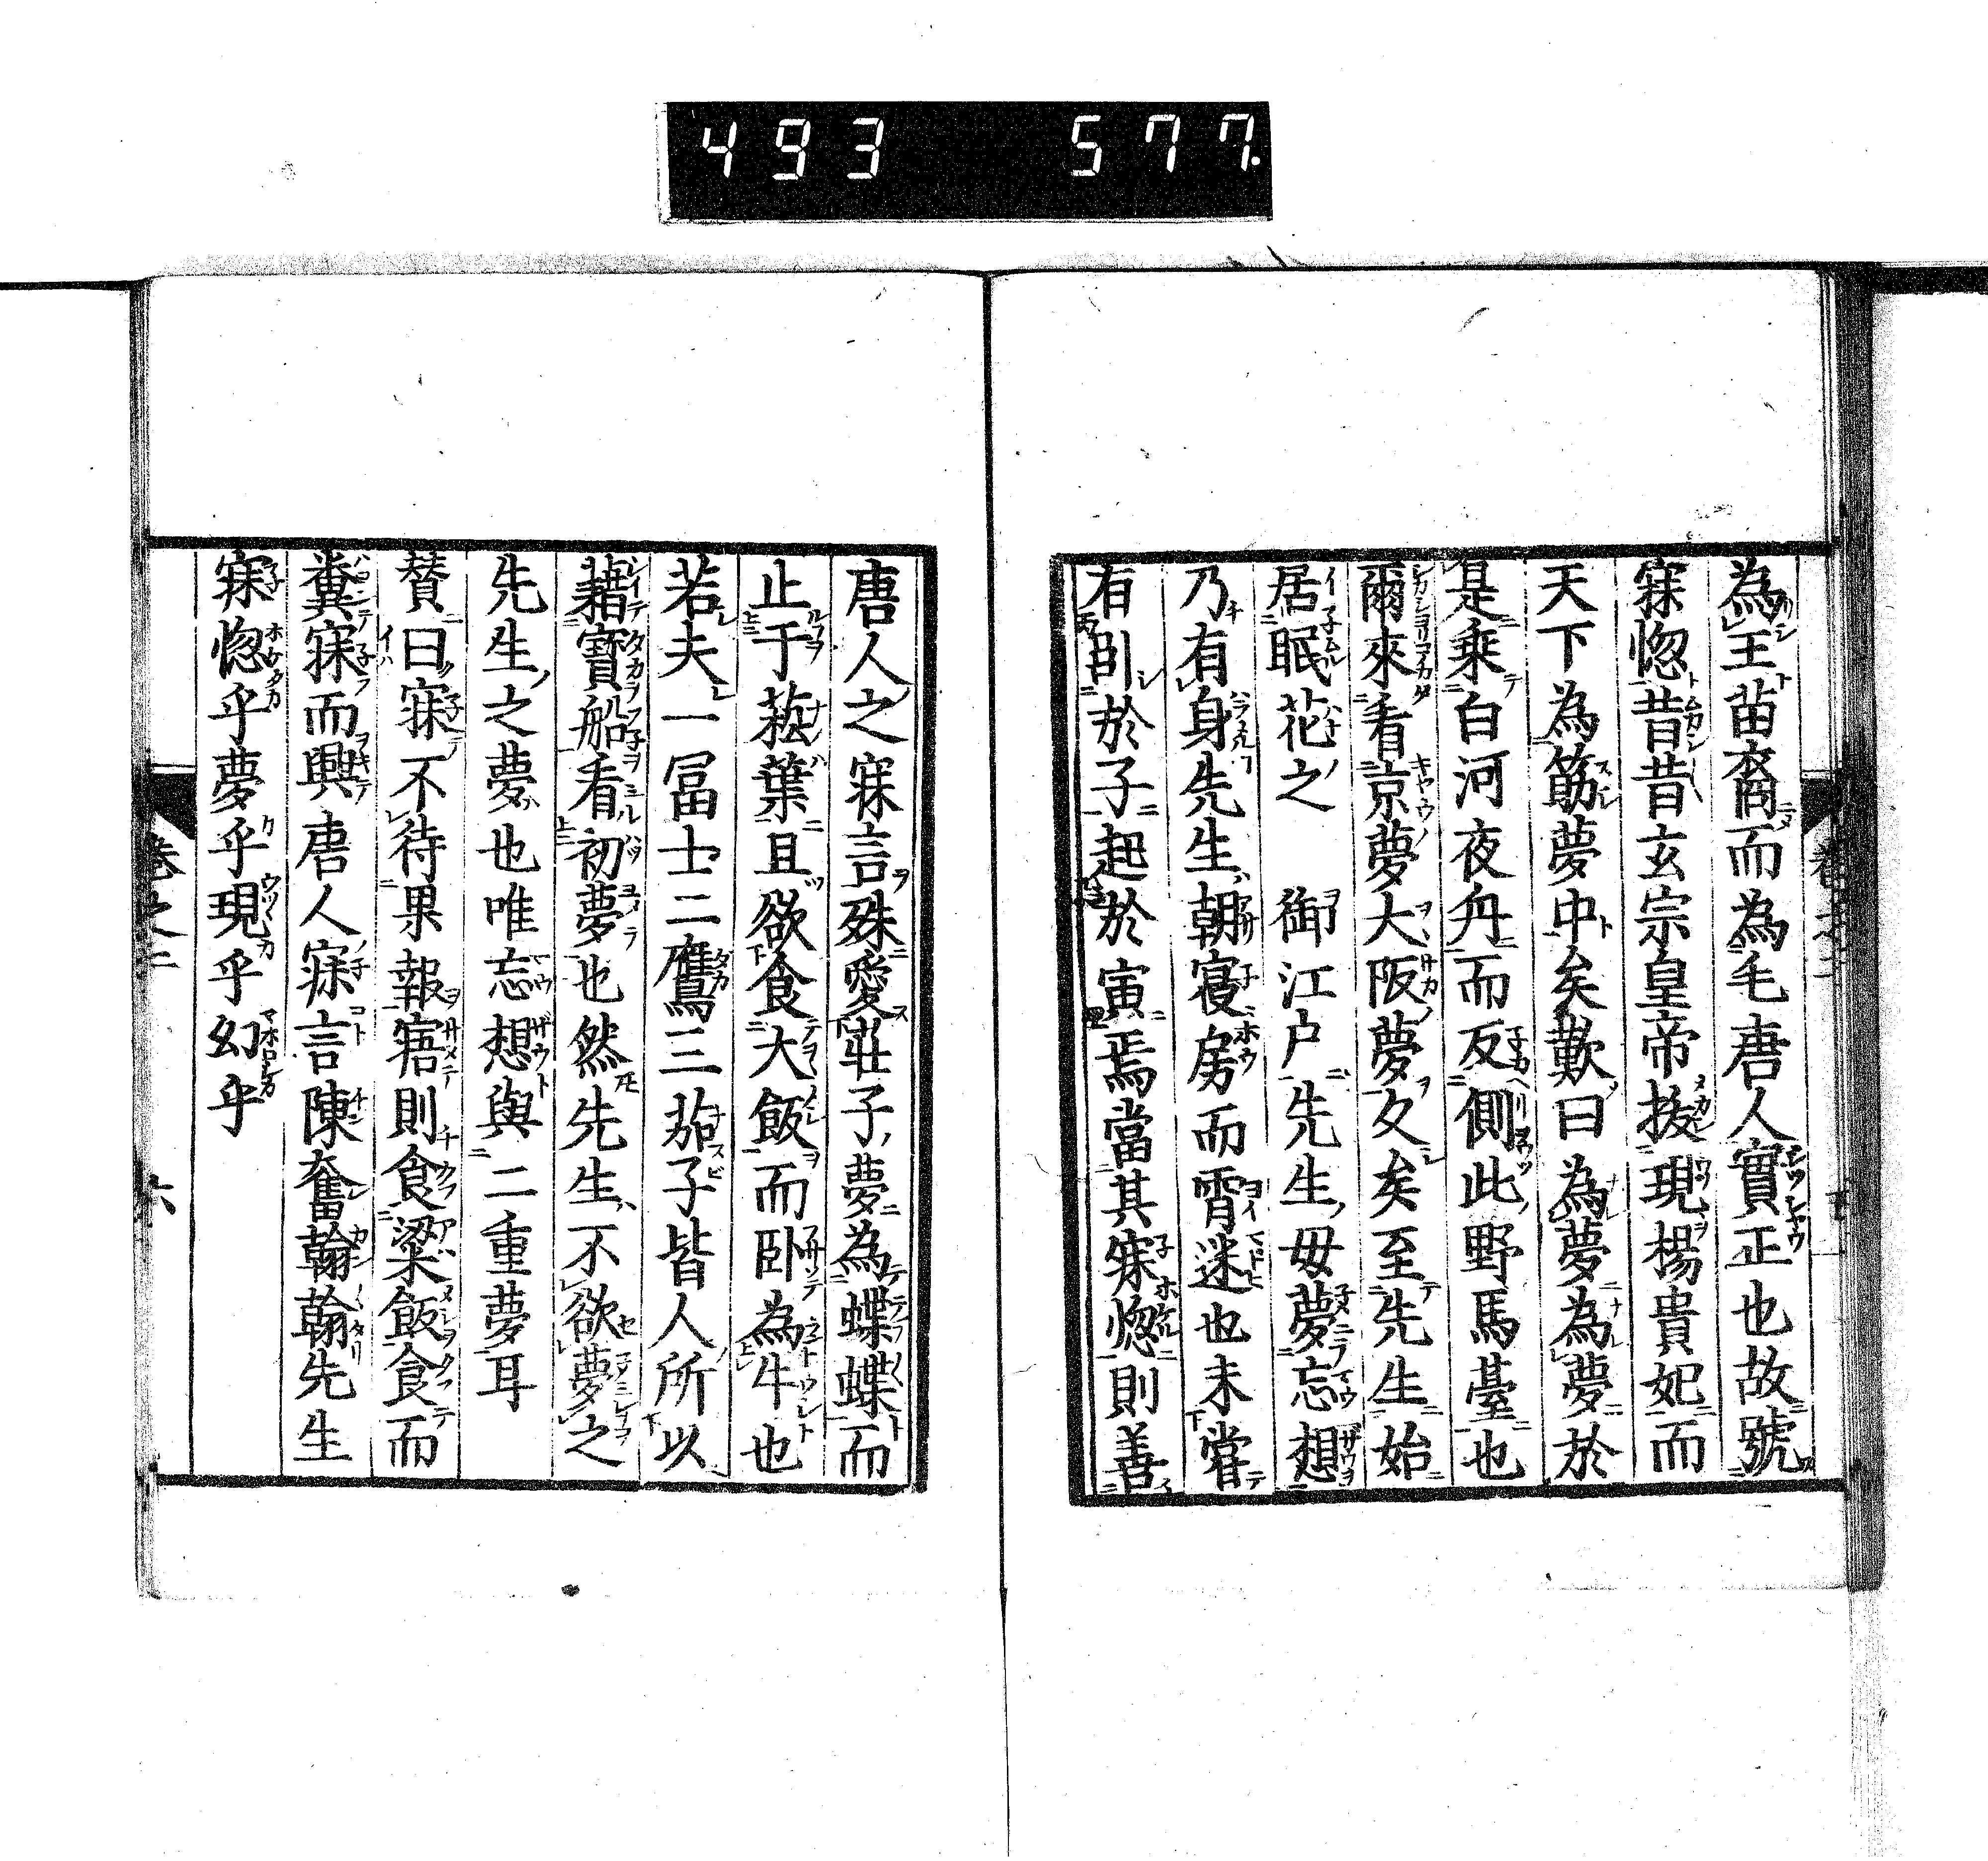 493 577.
為王苗裔而為毛唐人實正也故號
寐惚昔昔玄宗皇帝拔現楊貴妃而
天下為筋夢中矣歎曰為夢為夢於
是乘白河夜舟而反側此野馬臺也
爾來看京夢大阪夢久矣至先生始
居眠花之 御江戸先生毋夢忘想
乃有身先生朝寢房而霄迷也未嘗
有卧於子起於寅焉當其寐惚則善
唐人之寐言殊愛莊子夢為蝶蝶而
止于菘葉且欲食大飯而卧為牛也
若夫一冨士二鷹三茄子皆人所以
藉寶船看初夢也然先生不欲夢之
先生之夢也唯忘想與二重夢耳
賛曰寐不待果報寤則食粱飯食而
糞寐而興唐人寐言陳奮翰翰先生
寐惚乎夢乎現乎幻乎
卷之二 六